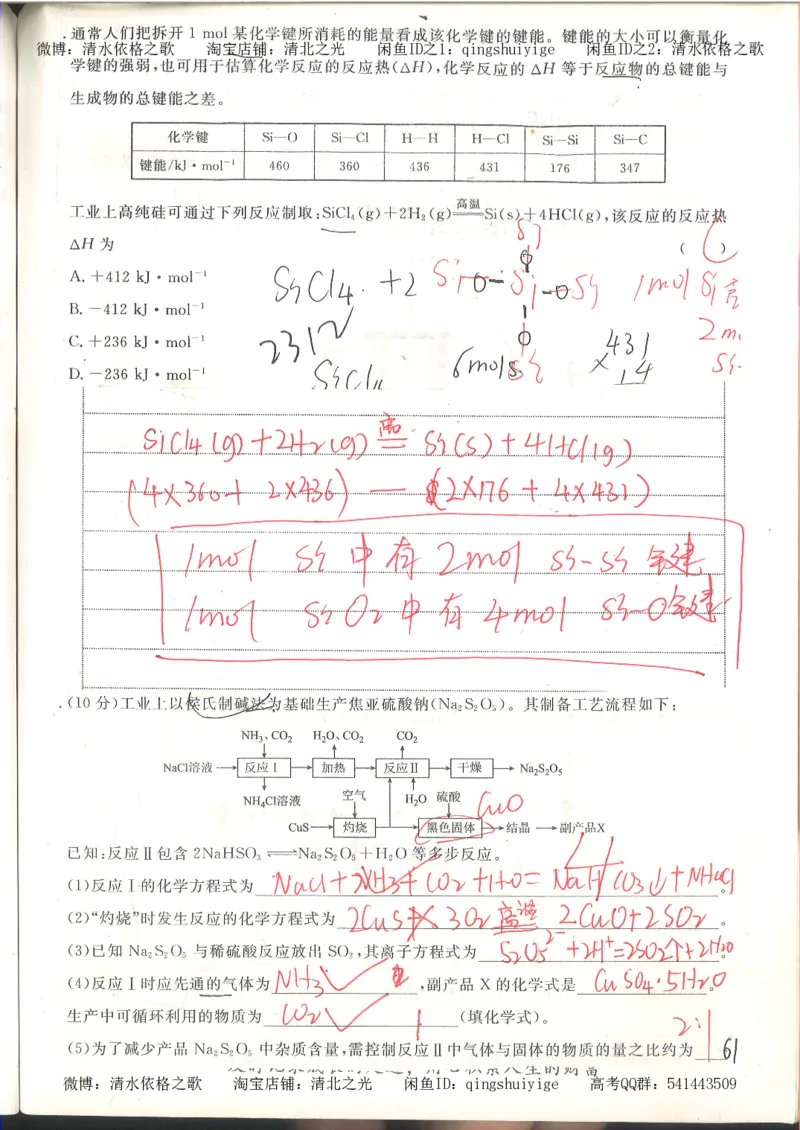 .通常人们把拆开 1 mol 某化学键所消耗的能量看成该化学键的键能。键能的大小可以衡量化
微博：清水依格之歌 淘宝店铺：清北之光 闲鱼ID之1：qingshuiyige 闲鱼ID之2：清水依格之歌
学键的强弱，也可用于估算化学反应的反应热(ΔH)，化学反应的 ΔH 等于反应物的总键能与
生成物的总键能之差。
化学键 Si—O Si—Cl H—H H—Cl Si—Si Si—C
键能/kJ·mol⁻¹ 460 360 436 431 176 347
工业上高纯硅可通过下列反应制取：SiCl₄(g)+2H₂(g)══高温══Si(s)+4HCl(g)，该反应的反应热
ΔH 为 ( C )
A. +412 kJ·mol⁻¹
B. −412 kJ·mol⁻¹
C. +236 kJ·mol⁻¹
D. −236 kJ·mol⁻¹
SiCl4 +2
2312
6mol
431
×14
SiCl4(g)+2H2(g) 高温 = Si(s)+4HCl(g)
(4×360+2×436) — (2×176+4×431)
1mol Si 中有 2mol Si-Si 键
1mol SiO2 中有 4mol Si-O 键
.(10 分)工业上以侯氏制碱法为基础生产焦亚硫酸钠(Na₂S₂O₅)。其制备工艺流程如下：
NH₃、CO₂ H₂O、CO₂ CO₂
NaCl溶液 反应Ⅰ 加热 反应Ⅱ 干燥 Na₂S₂O₅
NH₄Cl溶液 空气 H₂O 硫酸 CuO
CuS 灼烧 黑色固体 结晶 副产品X
已知：反应Ⅱ包含 2NaHSO₃⇌Na₂S₂O₅+H₂O 等多步反应。
(1)反应Ⅰ的化学方程式为 NaCl+NH3+CO2+H2O=NaHCO3↓+NH4Cl。
(2)“灼烧”时发生反应的化学方程式为 2CuS+3O2 高温 2CuO+2SO2。
(3)已知 Na₂S₂O₅ 与稀硫酸反应放出 SO₂，其离子方程式为 S2O5²⁻+2H⁺=2SO2↑+H2O。
(4)反应Ⅰ时应先通的气体为 NH3，副产品 X 的化学式是 CuSO4·5H2O。
生产中可循环利用的物质为 CO2 (填化学式)。
(5)为了减少产品 Na₂S₂O₅ 中杂质含量，需控制反应Ⅱ中气体与固体的物质的量之比约为 2:1
61
微博：清水依格之歌 淘宝店铺：清北之光 闲鱼ID：qingshuiyige 高考QQ群：541443509